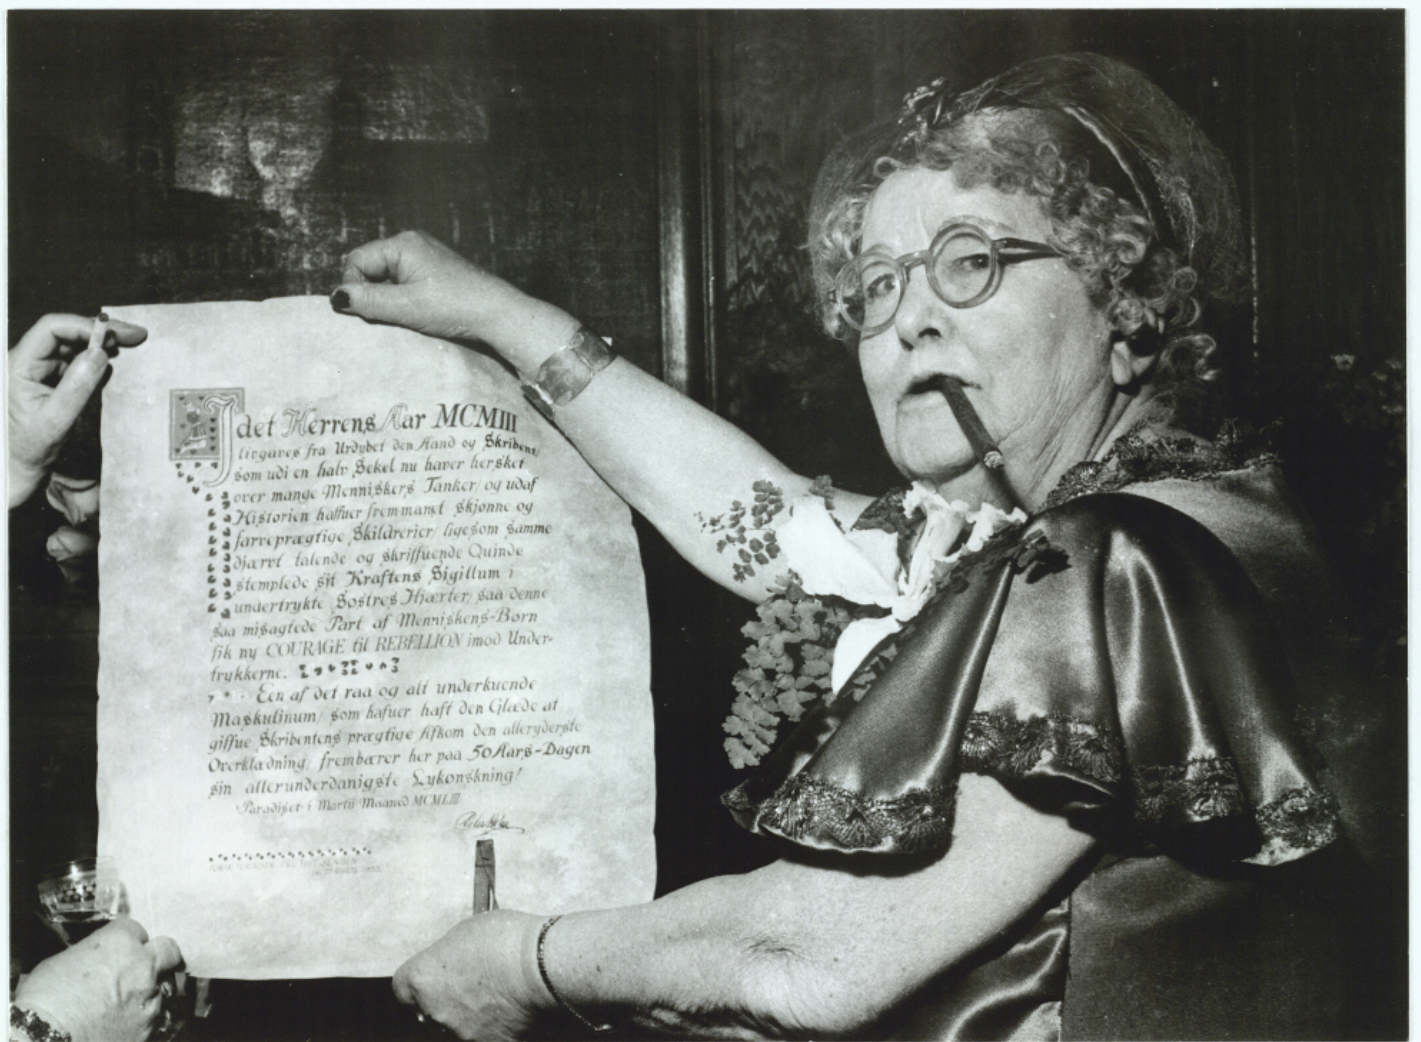 I det Herrens Aar MCMIII
livgaves fra Urdybet den Aand og Skribent,
som udi en halv Sekel nu haver hersket
over mange Menniskers Tanker, og udaf
Historien haffuer fremmanet skjønne og
farveprægtige Skildrerier, ligesom samme
djærvt talende og skriffuende Quinde
stemplede sit Kraftens Sigillum i
undertrykte Søstres Hjærter, saa denne
saa misagtede Part af Menniskens-Børn
fik ny COURAGE til REBELLION imod Under-
trykkerne.
Een af det raa og alt underkuende
Maskulinum, som hafuer haft den Glæde at
giffue Skribentens prægtige Afkom den alleryderste
Overklædning, frembærer her paa 50 Aars-Dagen
sin allerunderdanigste Lykonskning!
Paradiset i Martii Maaned MCMLIII